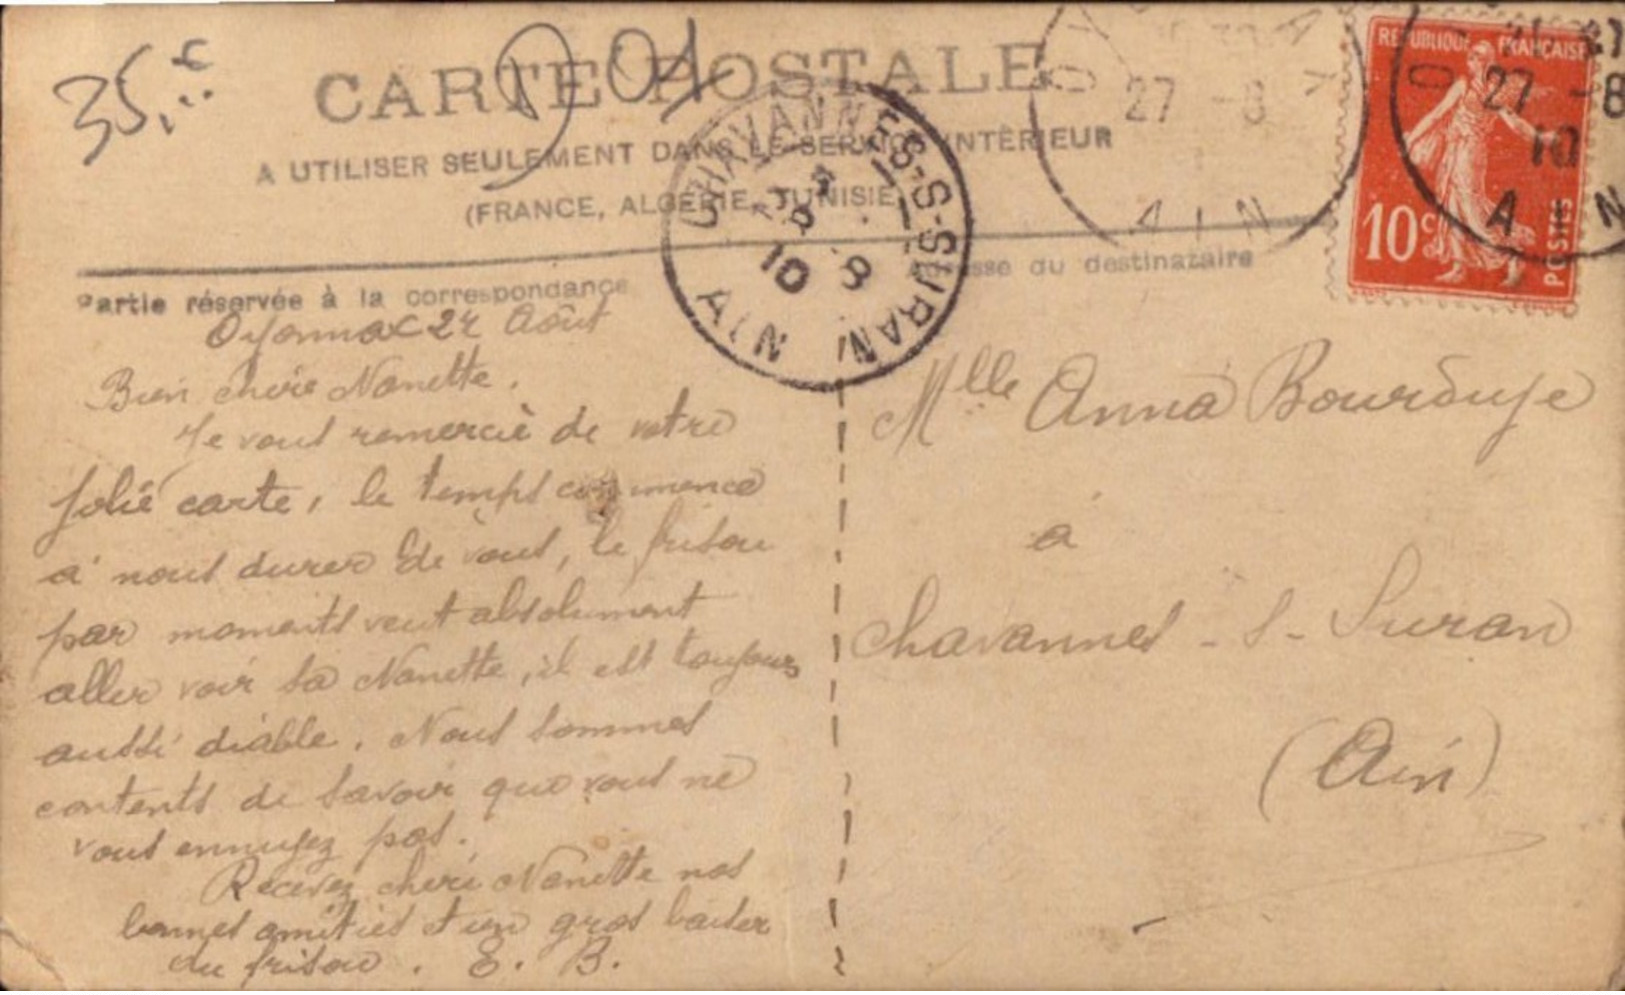 35,..
CARTE POSTALE
A UTILISER SEULEMENT DANS LE SERVICE INTÉRIEUR
(FRANCE, ALGÉRIE, TUNISIE)
CHAVANNES-S-SURAN
8
10
AIN
27 -8
AIN
REPUBLIQUE FRANÇAISE
10c
POSTES
27 -8
10
AIN
Partie réservée à la correspondance
Adresse du destinataire
Oyonnax 27 Août
Bien chère Nanette.
Je vous remercie de votre
jolie carte, le temps commence
à nous durer de vous, le frisou
par moments veut absolument
aller voir sa Nanette, il est toujours
aussi diable. Nous sommes
contents de savoir que vous ne
vous ennuyez pas.
Recevez chère Nanette nos
bonnes amitiés et un gros baiser
du frisou. E. B.
Mlle Anna
à
Chavannes-s-Suran
(Ain)